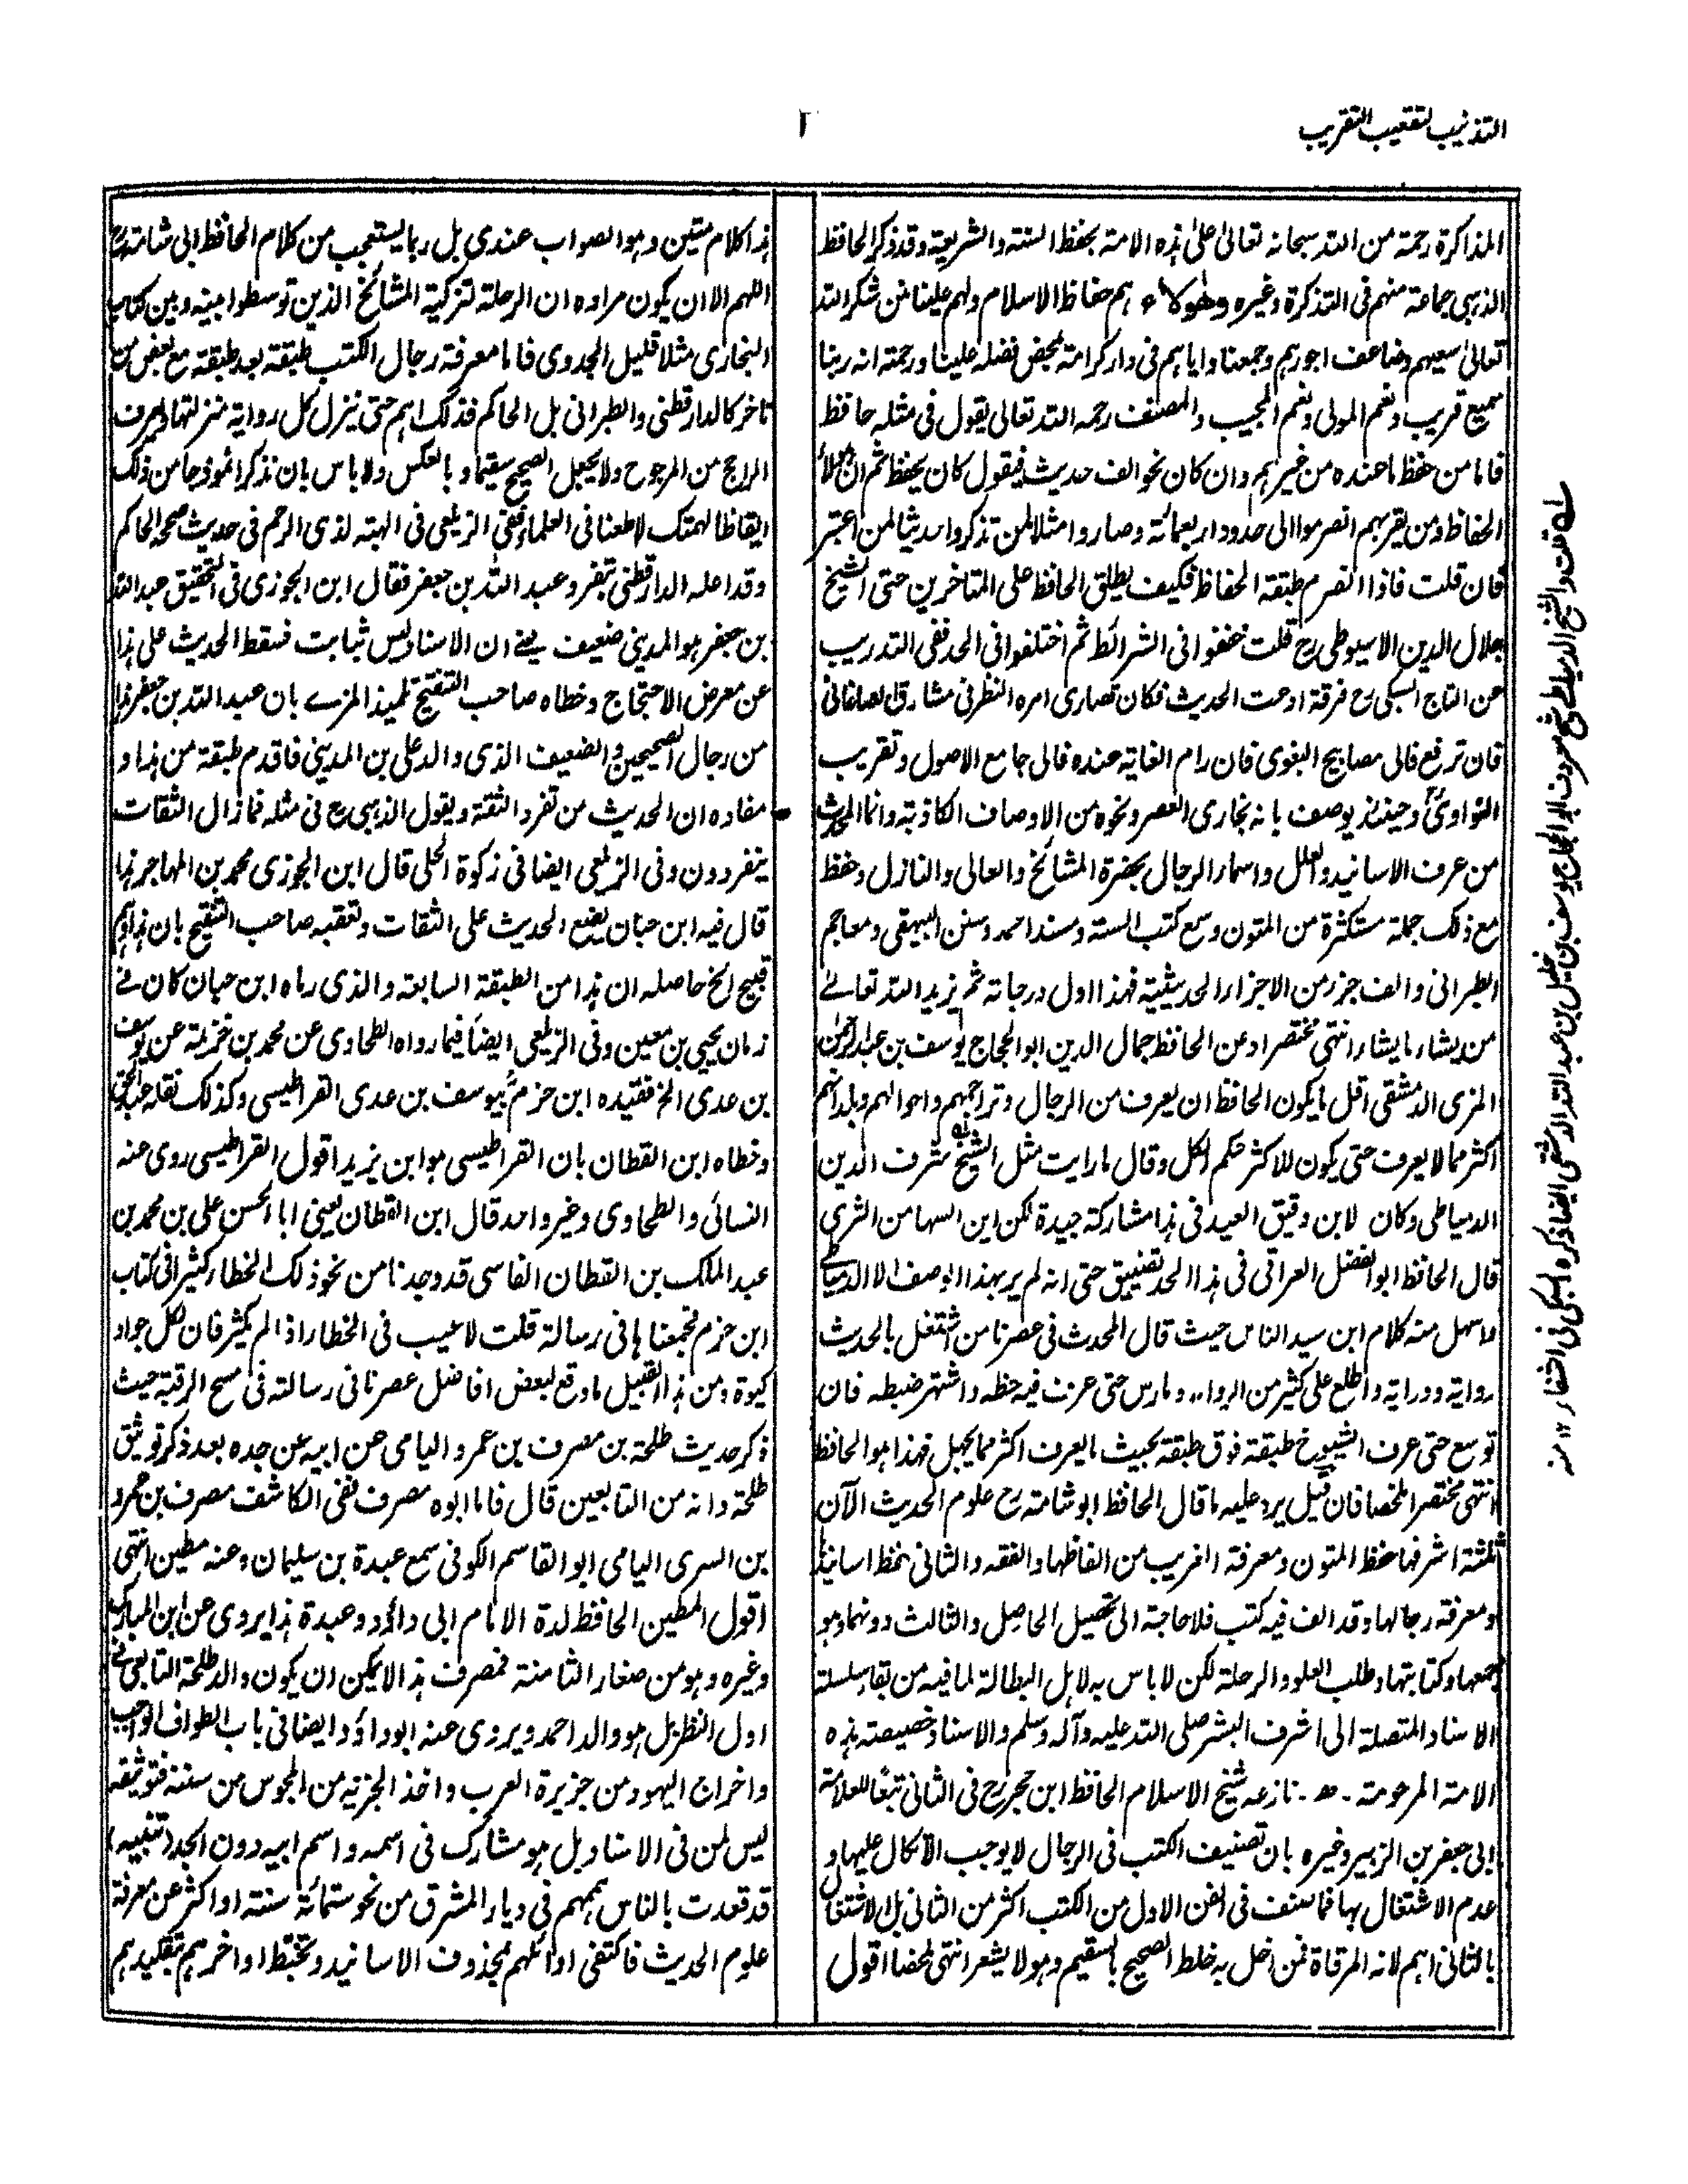 التذنيب لتعقيب التقريب
٢
المذاكرة رحمة من الله سبحانه تعالى على هذه الامة بحفظ السنة والشريعة وقد ذكر الحافظ
الذهبى جماعة منهم فى التذكرة وغيره وهولاء هم حفاظ الاسلام ولهم علينا منن شكر الله
تعالى سعيهم وضاعف اجورهم وجمعنا واياهم فى دار كرامته بمحض فضله علينا ورحمته انه ربنا
سميع قريب ونعم المولى ونعم المجيب والمصنف رحمه الله تعالى يقول فى مثله حافظ
فاما من حفظ ما عنده من غيرهم وان كان نحو الف حديث فيقول كان يحفظ ثم ان هؤلاء
الحفاظ ومن يقربهم انصرموا الى حدود اربعمائة وصاروا مثلا لمن تذكر واحدثيا لمن اعتبر
فان قلت فاذا انصرم طبقة الحفاظ فكيف يطلق الحافظ على المتاخرين حتى الشيخ
جلال الدين الاسيوطى رح قلت خففوا فى الشرائط ثم اختلفوا فى الحد ففى التدريب
عن التاج السبكى رح فرقة ادعت الحديث فكان قصارى امره النظر فى مشارق الصاغانى
فان ترفع فالى مصابيح البغوى فان رام الغاية عنده فالى جامع الاصول وتقريب
النواوى وحينئذ يوصف بانه بخارى العصر ونحوه من الاوصاف الكاذبة وانما المحدث
من عرف الاسانيد والعلل واسماء الرجال بحضرة المشائخ والعالى والنازل وحفظ
مع ذلك جملة مستكثرة من المتون وسمع كتب الستة ومسند احمد وسنن البيهقى ومعاجم
الطبرانى والف جزء من الاجزاء الحديثية فهذا اول درجاته ثم يزيد الله تعالى
من يشاء ما يشاء انتهى مختصرا وعن الحافظ جمال الدين ابو الحجاج يوسف بن عبد الرحمن
المزى الدمشقى اقل ما يكون الحافظ ان يعرف من الرجال وتراجمهم واحوالهم وبلدانهم
اكثر مما لا يعرف حتى يكون للاكثر حكم الكل وقال ما رايت مثل الشيخ شرف الدين
الدمياطى وكان لابن دقيق العيد فى هذا مشاركة جيدة لكن اين السها من الثرى
قال الحافظ ابو الفضل العراقى فى هذا الحد تضييق حتى انه لم ير بهذا الوصف الا الدمياطى
واسهل منه كلام ابن سيد الناس حيث قال المحدث فى عصرنا من اشتغل بالحديث
رواية ودراية واطلع على كثير من الرواة ومارس حتى عرف فيه حظه واشتهر ضبطه فان
توسع حتى عرف الشيوخ طبقة فوق طبقة بحيث ما يعرف اكثر مما يجهل فهذا هو الحافظ
انتهى مختصرا ملخصا فان قيل يرد عليه ما قال الحافظ ابو شامة رح علوم الحديث الآن
ثلثة اشرفها حفظ المتون ومعرفة الغريب من الفاظها والفقه والثانى حفظ اسانيد
ومعرفة رجالها وقد الف فيه كتب فلا حاجة الى تحصيل الحاصل والثالث دونهما وهو
جمعها وكتابتها وطلب العلو والرحلة لكن لا باس به لاهل البطالة لما فيه من بقاء سلسلة
الاسناد المتصلة الى اشرف البشر صلى الله عليه وآله وسلم والاسناد خصيصة هذه
الامة المرحومة - ه - نازعه شيخ الاسلام الحافظ ابن حجر رح فى الثانى تبعا للعلامة
ابى جعفر بن الزبير وغيره بان تصنيف الكتب فى الرجال لا يوجب الاتكال عليها و
عدم الاشتغال بها فما صنف فى الفن الاول من الكتب اكثر من الثانى بل الاشتغال
بالثانى اهم لانه المرقاة فمن اخل به خلط الصحيح بالسقيم وهو لا يشعر انتهى ملخصا اقول
هذا كلام متين وهو الصواب عندى بل ربما يستعجب من كلام الحافظ ابى شامة رح
اللهم الا ان يكون مراده ان الرحلة لتزكية المشائخ الذين توسطوا بينه وبين كتاب
البخارى مثلا قليل الجدوى فاما معرفة رجال الكتب طبقة بعد طبقة مع بعض من
تاخر كالدارقطنى والطبرانى بل الحاكم فذلك اهم حتى ينزل كل رواية منزلتها ويعرف
الراجح من المرجوح ولا يجعل الصحيح سقيما وبالعكس ولا باس بان نذكر انموذجا من ذلك
ايقاظا لهمتك لا طعنا فى العلماء ففى الزيلعى فى الهبة لذى الرحم فى حديث صححه الحاكم
وقد اعله الدارقطنى بتفرد عبد الله بن جعفر فقال ابن الجوزى فى التحقيق عبد الله
بن جعفر هو المدينى ضعيف يعنى ان الاسناد ليس بثابت فسقط الحديث على هذا
عن معرض الاحتجاج وخطاه صاحب التنقيح تلميذ المزى بان عبد الله بن جعفر هذا
من رجال الصحيحين والضعيف الذى والد على بن المدينى فاقدم طبقة من هذا و
مفاده ان الحديث من تفرد الثقة ويقول الذهبى رح فى مثله فما زال الثقات
يتفردون وفى الزيلعى ايضا فى زكوة الحلى قال ابن الجوزى محمد بن المهاجر هذا
قال فيه ابن حبان يضع الحديث على الثقات وتعقبه صاحب التنقيح بان هذا وهم
قبيح الخ حاصله ان هذا من الطبقة السابعة والذى رماه ابن حبان كان فى
زمان يحيى بن معين وفى الزيلعى ايضا فيما رواه الطحاوى عن محمد بن خزيمة عن يوسف
بن عدى الخ فقيده ابن حزم بيوسف بن عدى القراطيسى وكذلك نقله عبد الحق
وخطاه ابن القطان بان القراطيسى هو ابن يزيد اقول القراطيسى روى عنه
النسائى والطحاوى وغير واحد قال ابن القطان يعنى ابا الحسن على بن محمد بن
عبد الملك بن القطان الفاسى قد وجدنا من نحو ذلك الخطاء كثيرا فى كتاب
ابن حزم فجمعناها فى رسالة قلت لا عيب فى الخطاء اذا لم يكثر فان لكل جواد
كبوة ومن هذا القبيل ما وقع لبعض افاضل عصرنا فى رسالته فى مسح الرقبة حيث
ذكر حديث طلحة بن مصرف بن عمرو اليامى عن ابيه عن جده بعد ذكر توثيق
طلحة وانه من التابعين قال فاما ابوه مصرف ففى الكاشف مصرف بن عمرو
بن السرى اليامى ابو القاسم الكوفى سمع عبدة بن سليمان وعنه مطين انتهى
اقول المطين الحافظ لدة الامام ابى داؤد وعبدة هذا يروى عن ابن المبارك
وغيره وهو من صغار الثامنة فمصرف هذا لا يمكن ان يكون والد طلحة التابعى فى
اول النظر بل هو والد احمد ويروى عنه ابو داؤد ايضا فى باب الطواف الواجب
واخراج اليهود من جزيرة العرب واخذ الجزية من المجوس من سننه فتوثيقه
ليس لمن فى الاسناد بل هو مشارك فى اسمه واسم ابيه دون الجد (تنبيه)
قد قعدت بالناس هممهم فى ديار المشرق من نحو ستمائة سنة او اكثر عن معرفة
علوم الحديث فاكتفى اوائلهم بمحذوف الاسانيد وتخبط اواخرهم بتقليدهم
قلت والشيخ الدمياطى شيخ معروف ابو الحجاج يوسف بن خليل بن عبد الله الدمشقى ايضا ذكره السبكى فى ١٢ منه